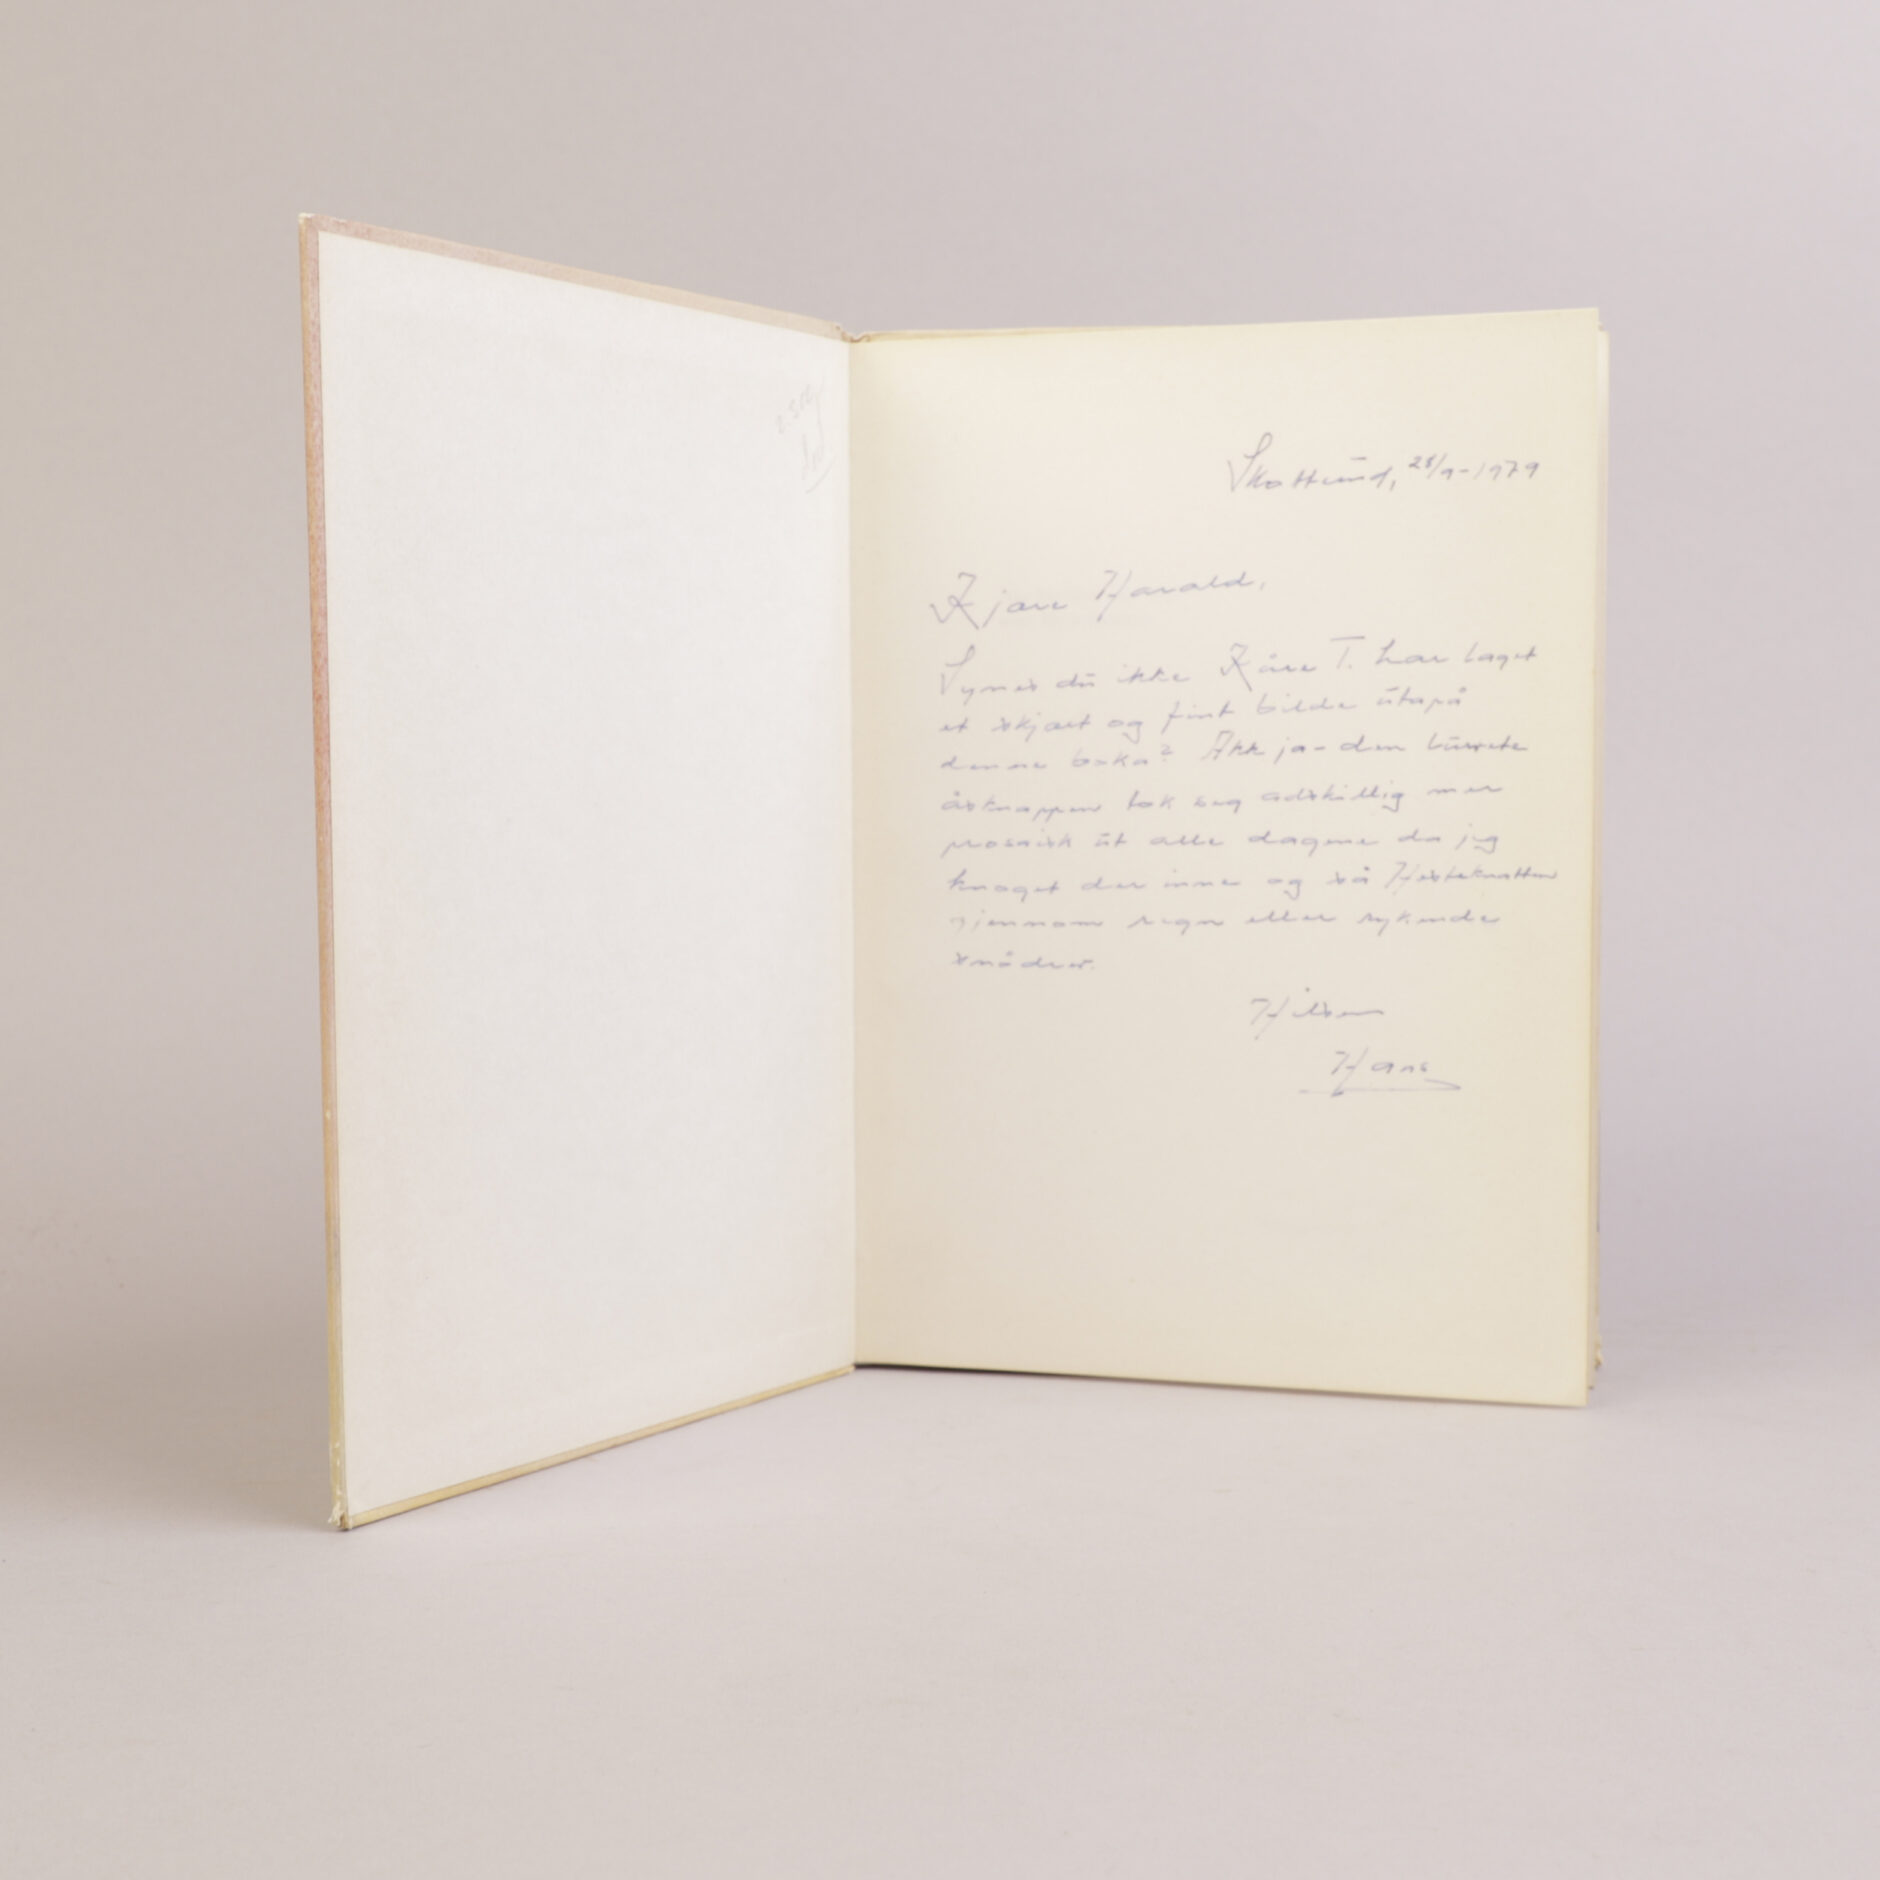 Skotterud, 28/9-1979
Kjære Harald,
Synes du ikke Kåre T. har laget
et skjært og fint bilde utapå
denne boka? Akk ja - den
åsknappen tok seg adskillig mer
prosaisk ut alle dagene da jeg
knaget der inne og så Hesteknatten
gjennom regn eller rykende
snødrev.
Hilsen
Hans